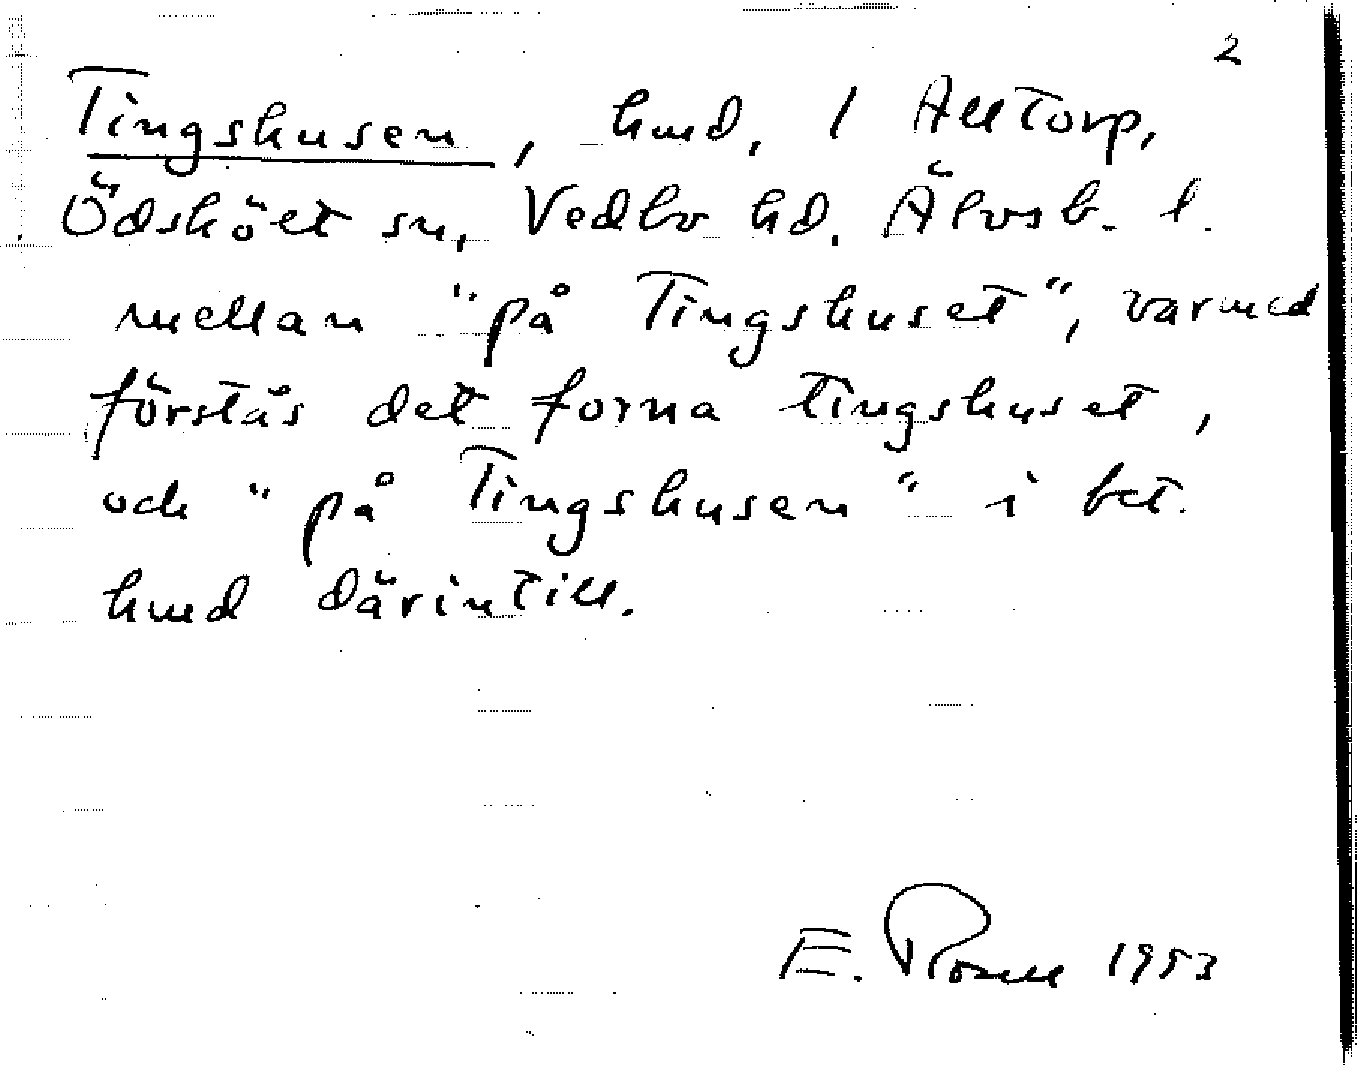 2
Tingshusen, hmd, 1 Alltorp,
Ödskölt sn, Vedbo hd. Älvsb. l.
mellan "på Tingshuset", varmed
förstås det forna tingshuset,
och "på Tingshusen" i bet.
hmd därintill.
E. Rosell 1953